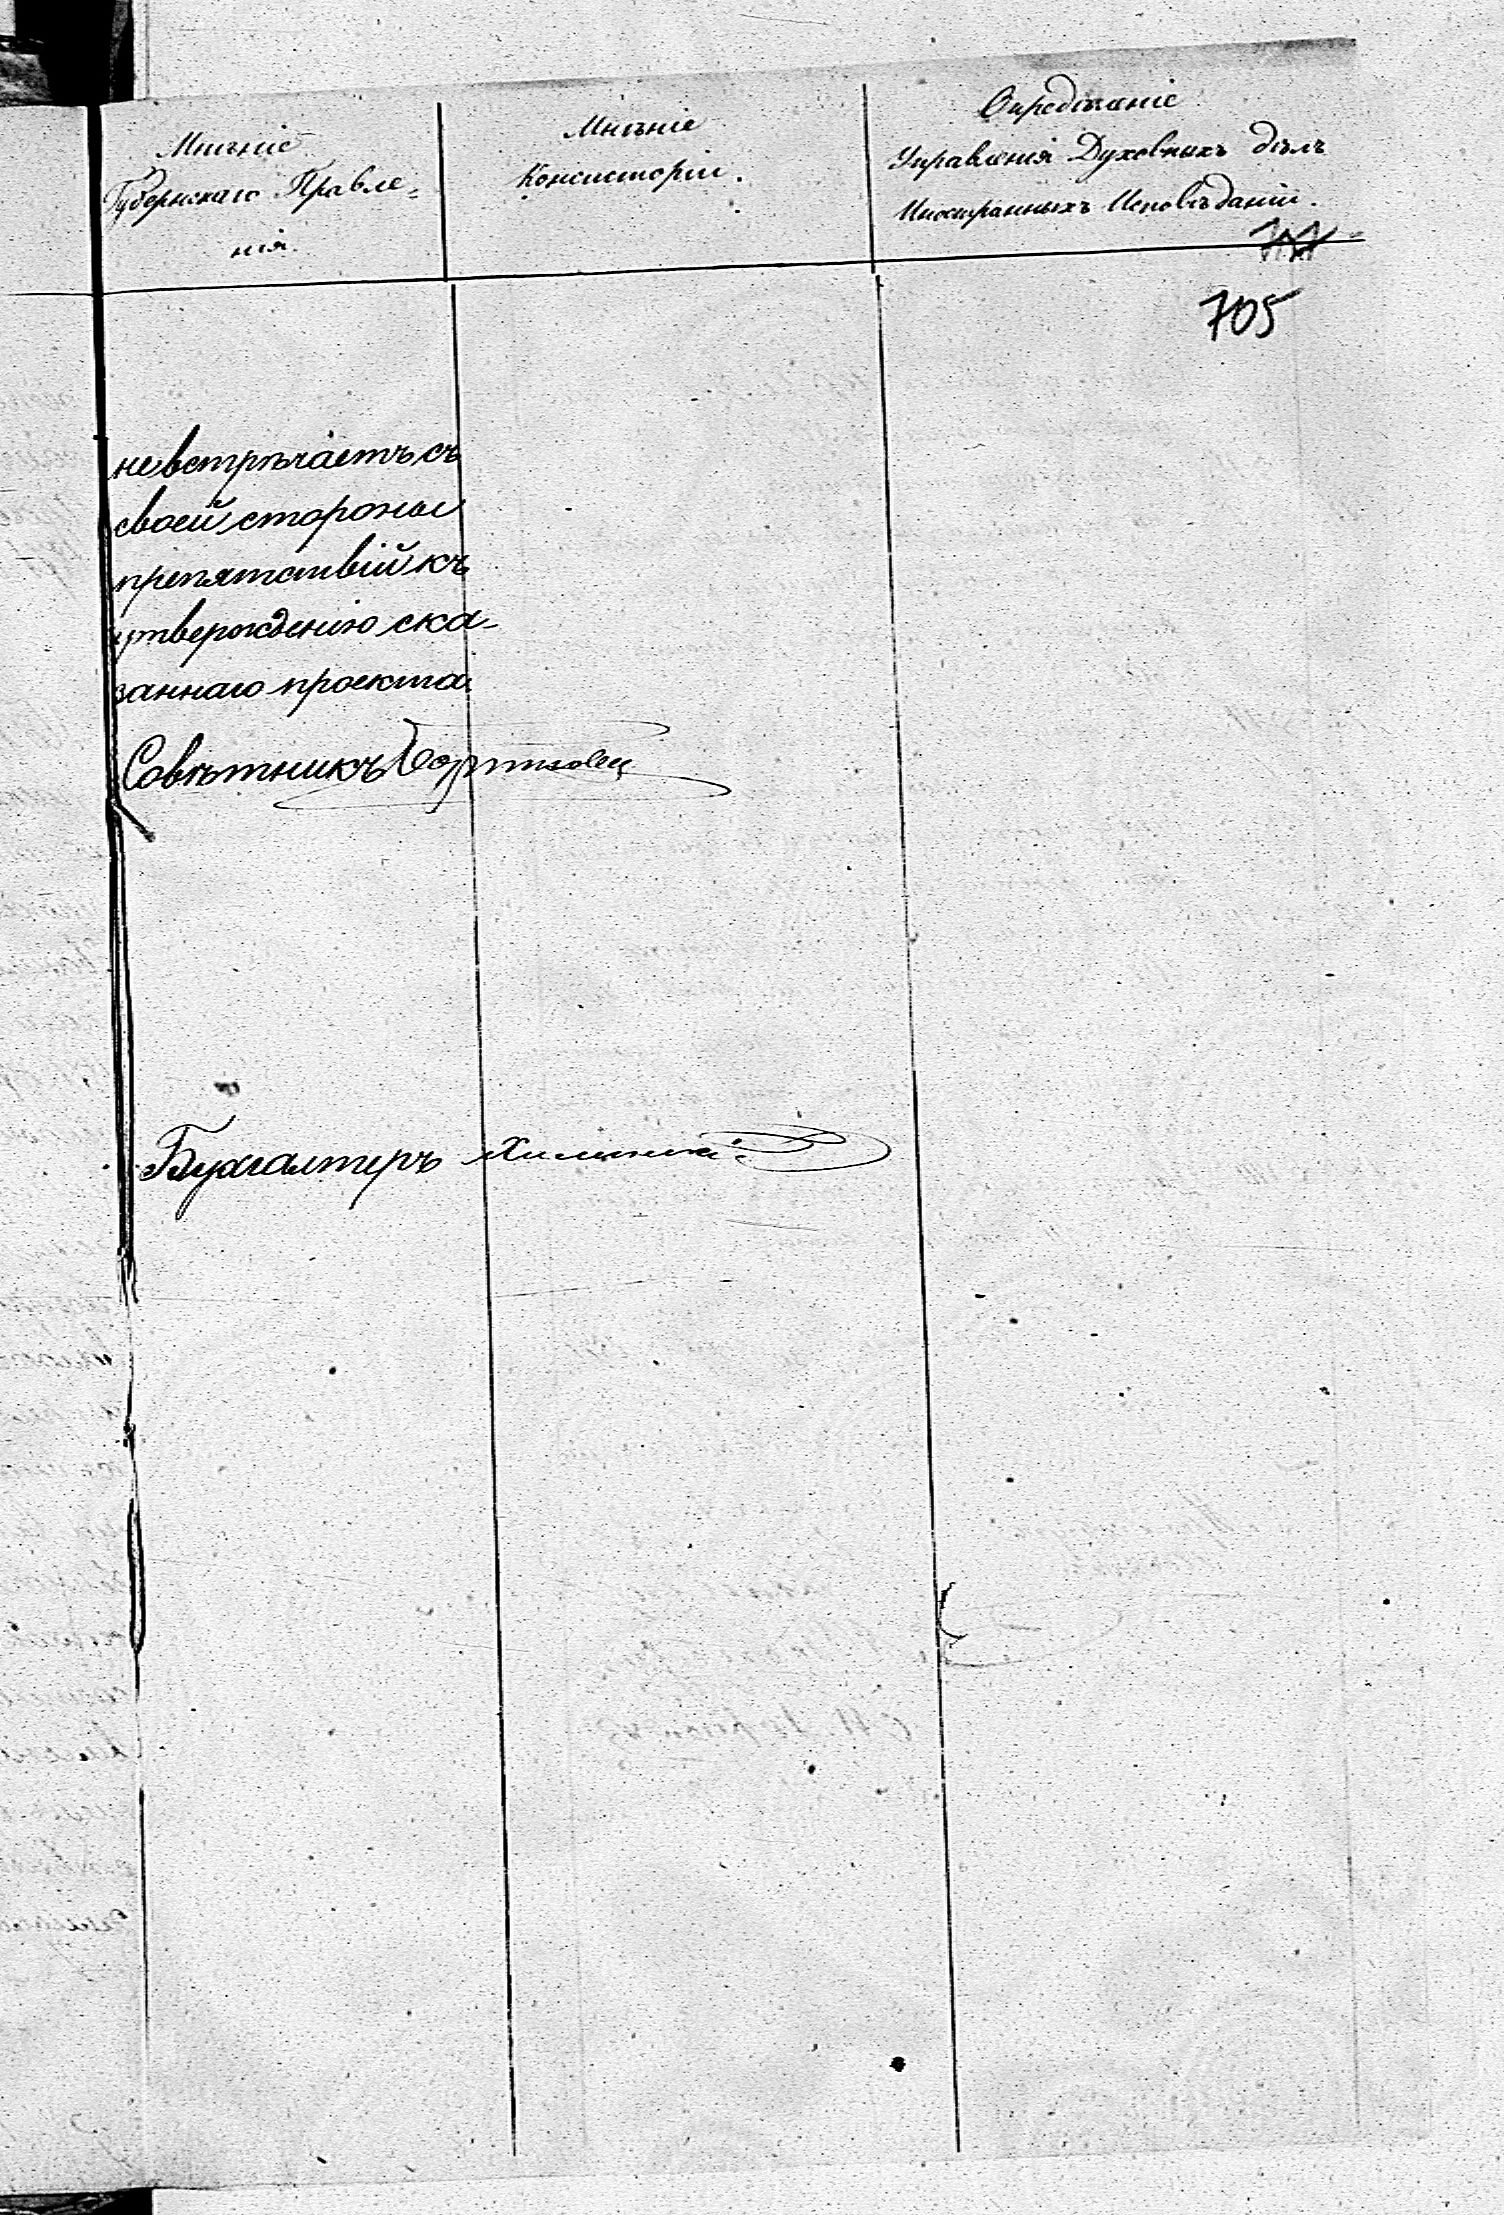 Мнѣніе
Губернскаго Правле-
нія.
Мнѣніе
Консисторіи.
Опредѣленіе
Управленія Духовныхъ дѣлъ
Иностранныхъ Исповѣданій.
705
не встрѣчаетъ съ
своей стороны
препятствій къ
утвержденію ска-
заннаго проекта.
Совѣтникъ
Бухгалтеръ